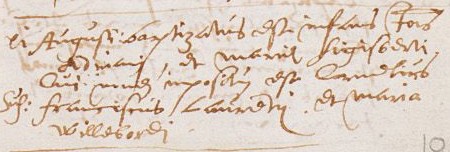 Augusti baptizatus est infans
Adriani et Maria
Cui nomen impositum est Cornelius
Franciscus Laurentij et Maria
Willebordi
10